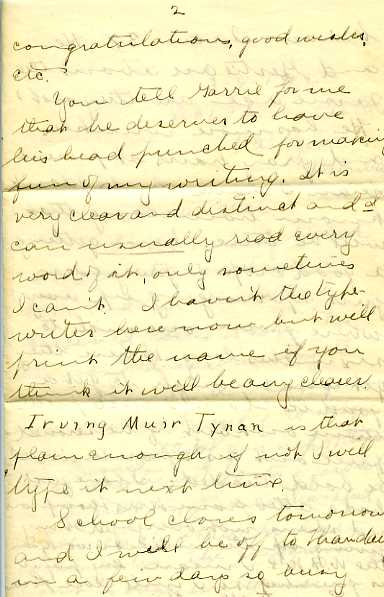 2
congratulations, good wishes,
etc.
You tell Garrie for me
that he deserves to have
his head punched for making
fun of my writing. It is
very clear and distinct and I
can usually read every
word of it, only sometimes
I can't. I haven't the type-
writer here now but will
print the name if you
think it will be any clearer.
Irving Muir Tynan is that
plain enough if not I will
type it next time.
School closes tomorrow
and I will be off to
in a few days so busy